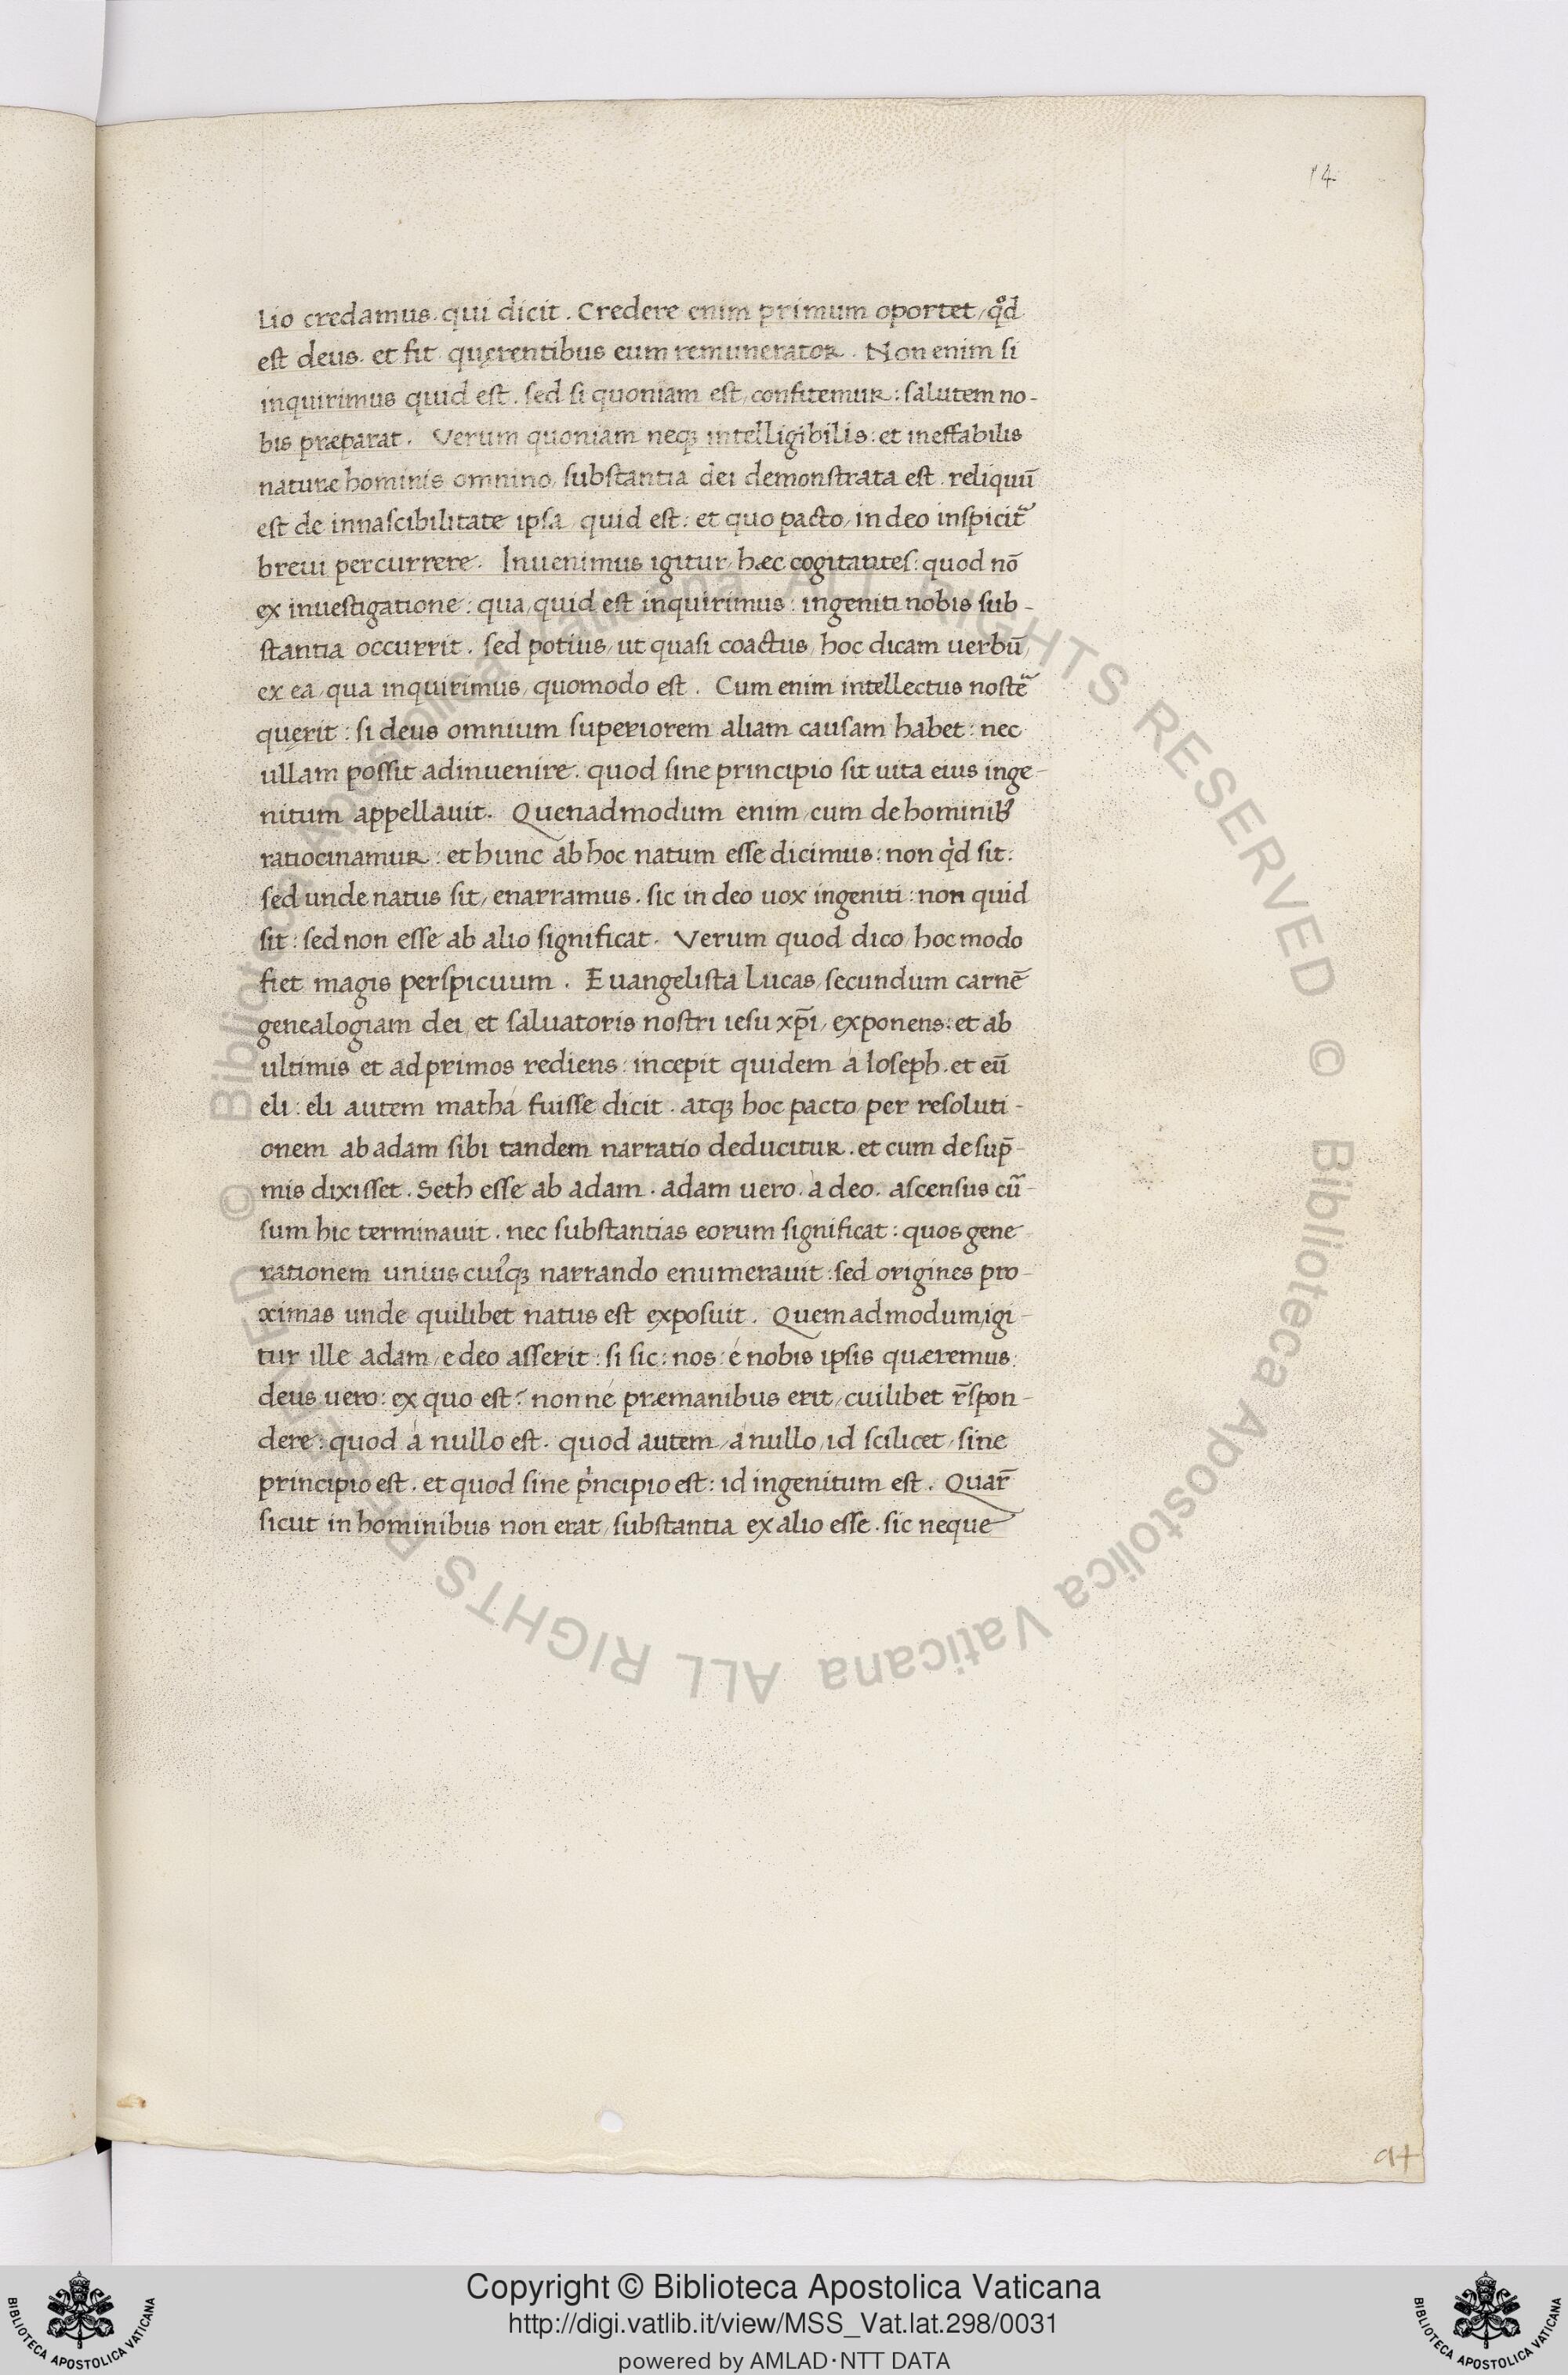 14
lio credamus. qui dicit. Credere enim primum oportet, qd
est deus. et fit quęrentibus eum remunerator. Non enim si
inquirimus quid est. sed si quoniam est, confitemur: salutem no-
bis præparat. Verum quoniam neq; intelligibilis: et ineffabilis
naturæ hominis omnino, substantia dei demonstrata est. reliquū
est de innascibilitate ipsa, quid est: et quo pacto, in deo inspicit̃
breui percurrere. Inuenimus igitur, hæc cogitantes: quod nō
ex inuestigatione: qua, quid est inquirimus: ingeniti nobis sub-
stantia occurrit. sed potius, ut quasi coactus, hoc dicam uerbū,
ex ea, qua inquirimus, quomodo est. Cum enim intellectus nostẽ
quęrit: si deus omnium superiorem aliam causam habet: nec
ullam possit adinuenire. quod sine principio sit uita eius inge-
nitum appellauit. Quenadmodum enim, cum de hominib⁹
ratiocinamur: et hunc ab hoc natum esse dicimus: non qd sit:
sed unde natus sit, enarramus. sic in deo uox ingeniti: non quid
sit: sed non esse ab alio significat. Verum quod dico, hoc modo
fiet magis perspicuum. Euangelista Lucas, secundum carnē
genealogiam dei, et saluatoris nostri iesu xp̄i, exponens: et ab
ultimis et ad primos rediens: incepit quidem à Ioseph. et eū
eli: eli autem mathá fuisse dicit. atq; hoc pacto, per resoluti-
onem ab adam sibi tandem narratio deducitur. et cum de sup̄-
mis dixisset. Seth esse ab adam. adam uero. à deo. ascensus cũ-
sum hic terminauit. nec substantias eorum significat: quos gene-
rationem unius cuiq; narrando enumerauit: sed origines pro-
ximas unde quilibet natus est exposuit. Quemadmodum, igi-
tur ille adam, e deo asserit: si sic: nos: é nobis ipsis quæremus:
deus uero: ex quo est: nonné præmanibus erit, cuilibet r̄spon-
dere: quod à nullo est. quod autem, à nullo, id scilicet, sine
principio est. et quod sine pncipio est: id ingenitum est. Quar̄
sicut in hominibus non erat, substantia ex alio esse. sic neque
© Biblioteca Apostolica Vaticana ALL RIGHTS RESERVED © Biblioteca Apostolica Vaticana ALL RIGHTS RESERVED
Copyright © Biblioteca Apostolica Vaticana
http://digi.vatlib.it/view/MSS_Vat.lat.298/0031
powered by AMLAD·NTT DATA
BIBLIOTECA APOSTOLICA VATICANA
BIBLIOTECA APOSTOLICA VATICANA